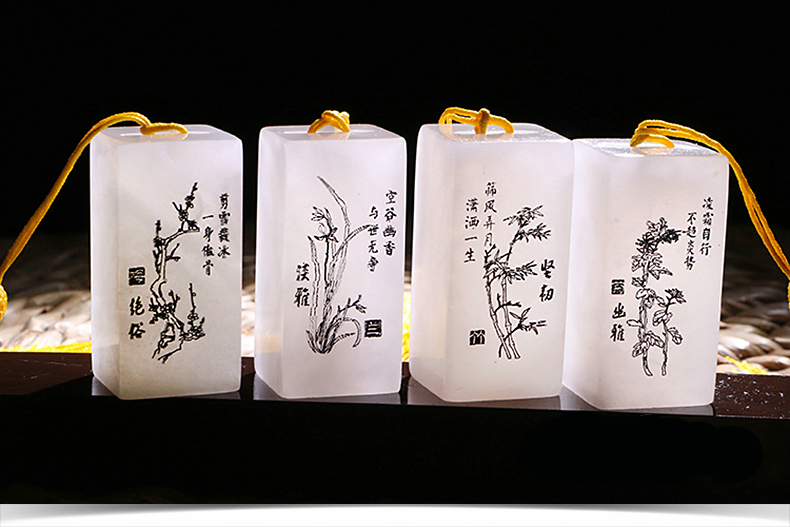 剪雪裁冰
一身傲骨
绝俗
空谷幽香
与世无争
淡雅
筛风弄月
潇洒一生
坚韧
竹
凌霜自行
不趋炎势
幽雅